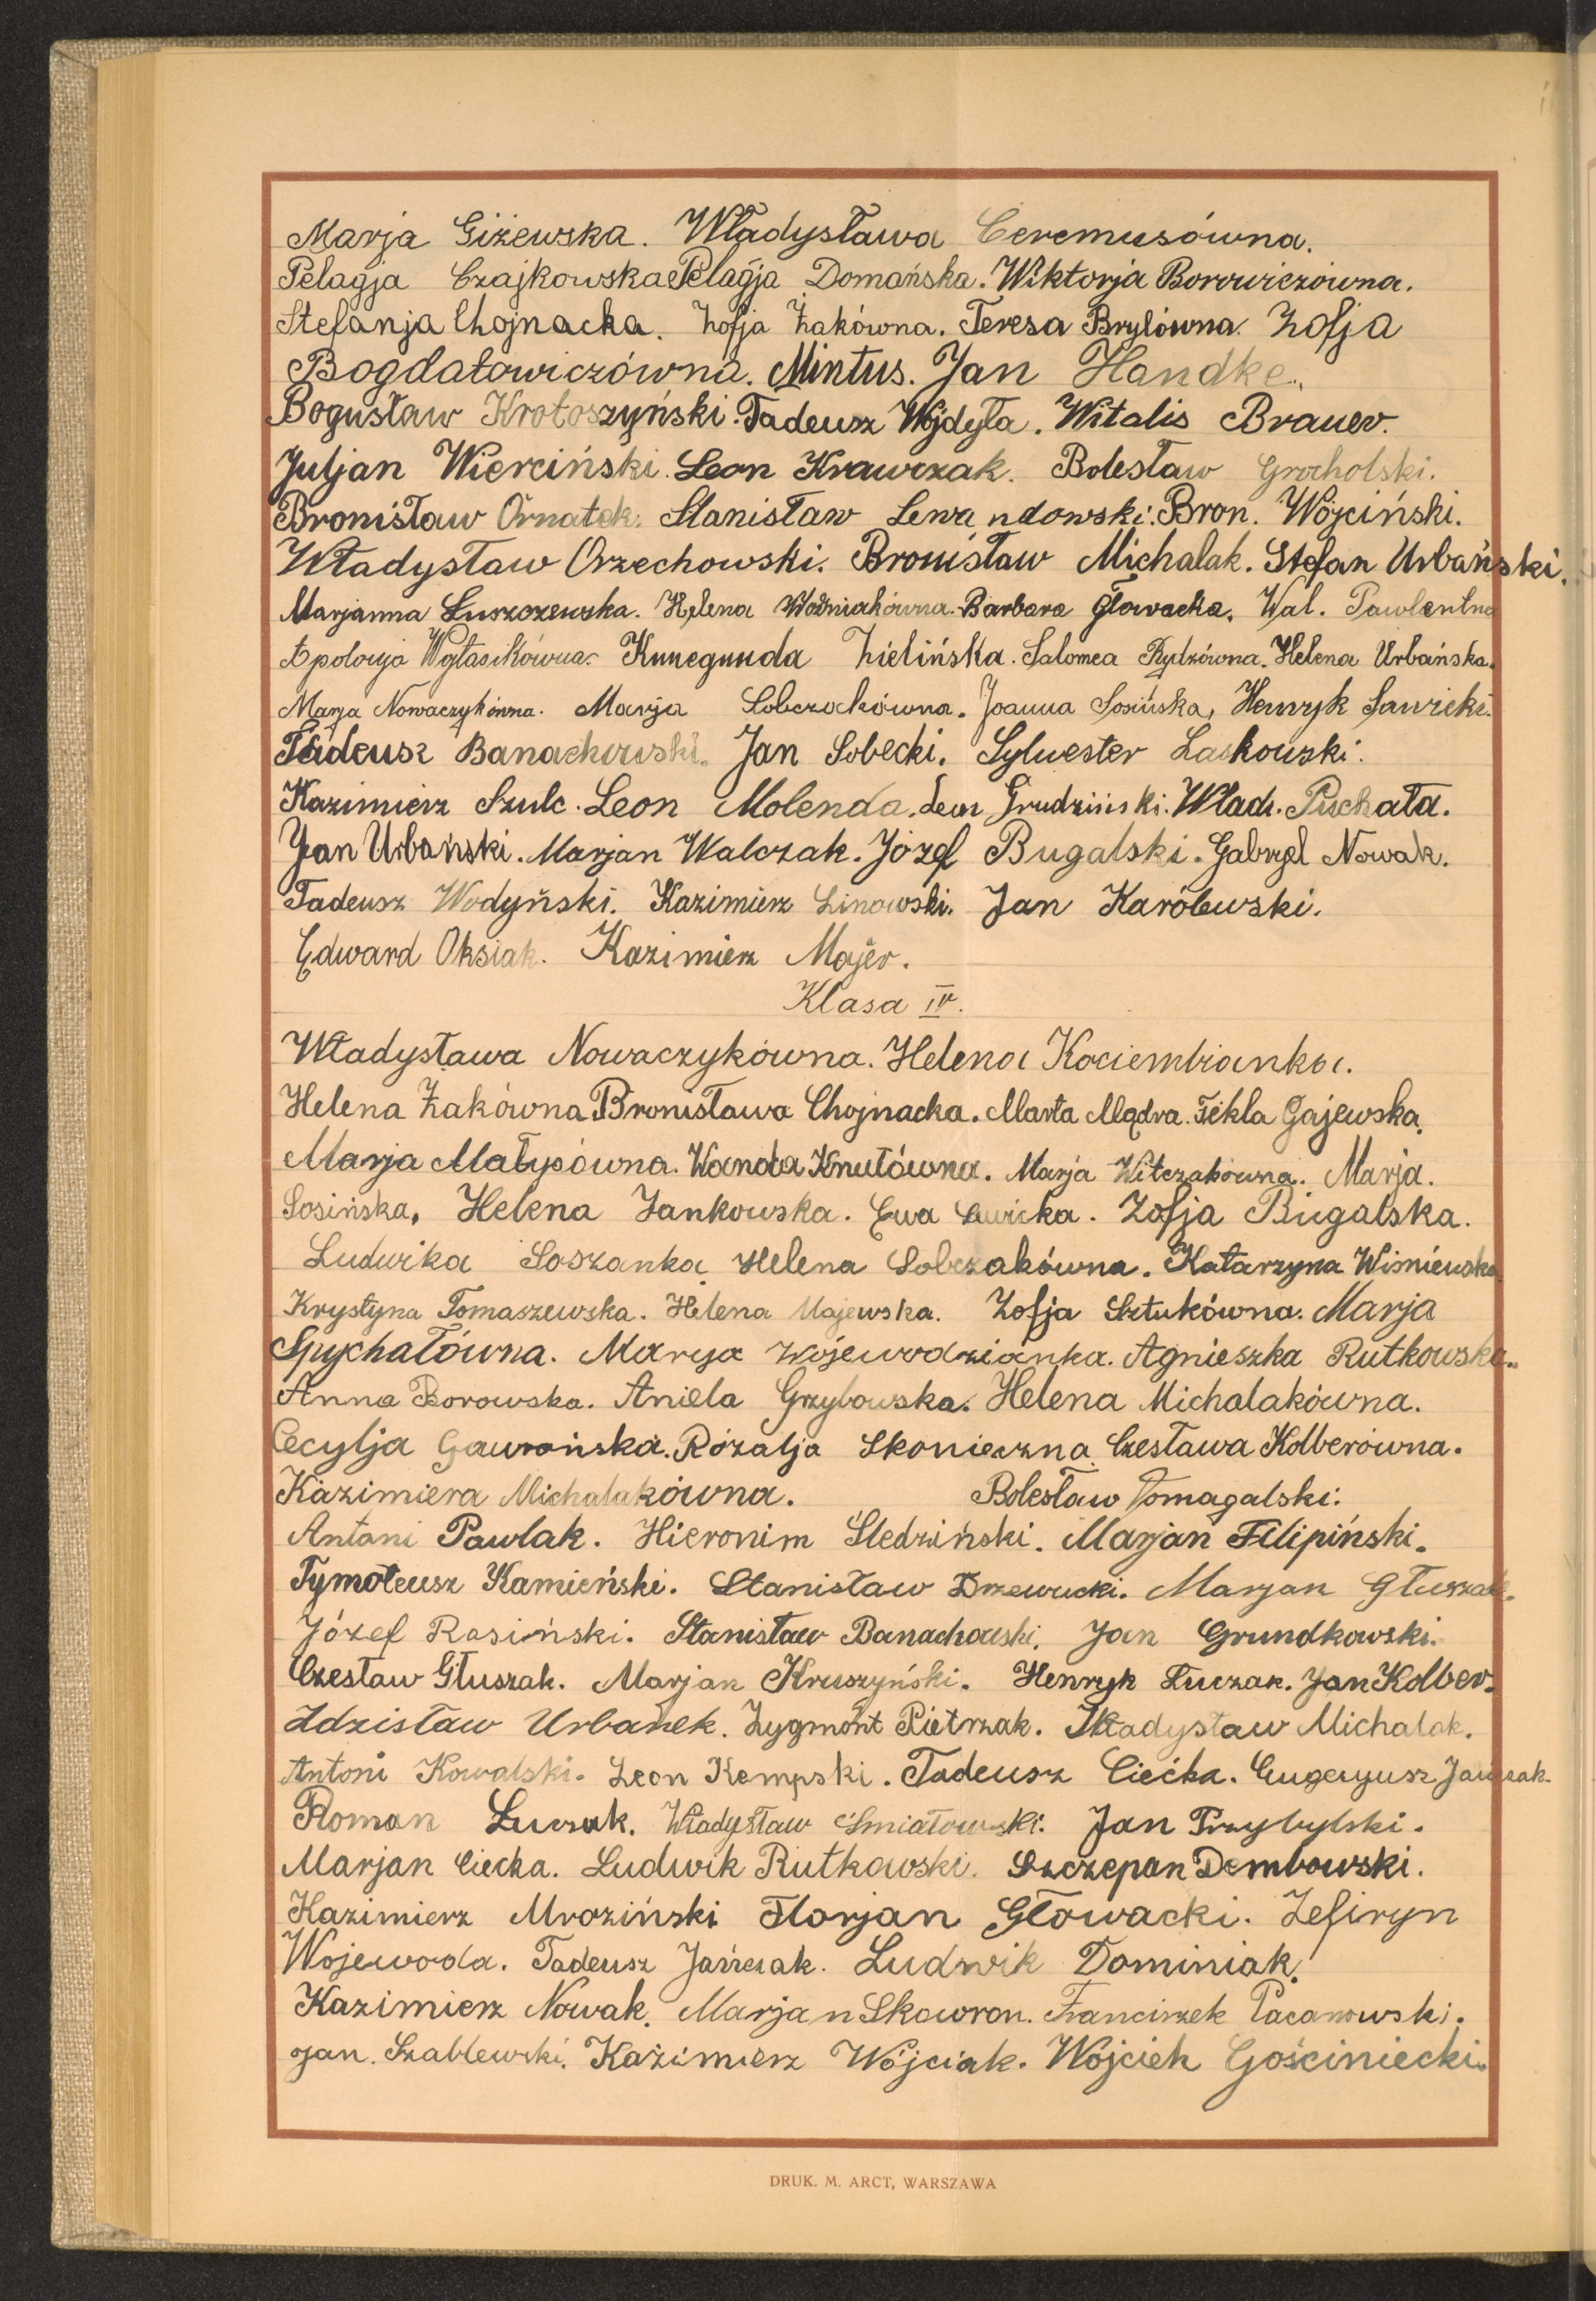 Marja Giżewska. Władysława Ceremusówna.
Pelagja Czajkowska Pelagja Domańska. Wiktorja Borowiczówna.
Stefanja Chojnacka. Zofja Żakówna. Teresa Brylówna. Zofja
Bogdałowiczówna. Mintus. Jan Handke.
Bogusław Krotoszyński. Tadeusz Wojdyła. Witalis Brauer.
Juljan Wierciński. Leon Krawczak. Bolesław Grocholski.
Bronisław Ornatek. Stanisław Lewandowski. Bron. Wójciński.
Władysław Orzechowski. Bronisław Michalak. Stefan Urbański.
Marjanna Łuszczewska. Helena Woźniakówna. Barbara Głowacka. Wal.
Apolonja Kunegunda Zielińska. Salomea Rydzówna. Helena Urbańska.
Marja Nowaczykówna. Marja Sobczakówna. Joanna Sosińska, Henryk Sawicki.
Tadeusz Banachowski. Jan Sobecki. Sylwester Laskowski.
Kazimierz Szulc. Leon Molenda. Leon Grudziński. Wład. Puchała.
Jan Urbański. Marjan Walczak. Józef Bugalski. Gabryel Nowak.
Tadeusz Wodyński. Kazimierz Linowski. Jan Karólewski.
Edward Oksiak. Kazimierz Majer.
Klasa IV.
Władysława Nowaczykówna. Helena Kociembianka.
Helena Żakówna Bronisława Chojnacka. Marta Mądra. Tekla Gajewska.
Marja Matysówna. Wanda Knutówna. Marja Witczakówna. Marja.
Sosińska, Helena Jankowska. Ewa Zofja Bugalska.
Ludwika Soszanka Helena Sobczakówna. Katarzyna Wiśniewska.
Krystyna Tomaszewska. Helena Majewska. Zofja Sztukówna. Marja
Spychałówna. Marya Wojewodzianka. Agnieszka Rutkowska.
Anna Borowska. Aniela Grzybowska. Helena Michalakówna.
Cecylja Gawrońska. Rózalja Skonieczna. Czesława Kolberówna.
Kazimiera Michalakówna. Bolesław Tomagalski.
Antoni Pawlak. Hieronim Śledziński. Marjan Filipiński.
Tymoteusz Kamieński. Stanisław Drzewucki. Marjan Głuszak.
Józef Rosiński. Stanisław Banachowski. Jan Grundkowski.
Czesław Głuszak. Marjan Kruszyński. Henryk Łuczak. Jan Kolber.
Zdzisław Urbanek. Zygmont Pietrzak. Władysław Michalak.
Antoni Kowalski. Leon Kempski. Tadeusz Ciećka. Eugenjusz Jańczak.
Roman Łuczak. Władysław Śmiałowski. Jan Przybylski.
Marjan Ciecka. Ludwik Rutkowski. Szczepan Dembowski.
Kazimierz Mroziński Florjan Głowacki. Zefiryn
Wojewoda. Tadeusz Jańczak. Ludwik Dominiak.
Kazimierz Nowak. Marjan Skowron. Franciszek Pacanowski.
Jan. Szablewski. Kazimierz Wójciak. Wojciek Gościniecki.
DRUK. M. ARCT, WARSZAWA